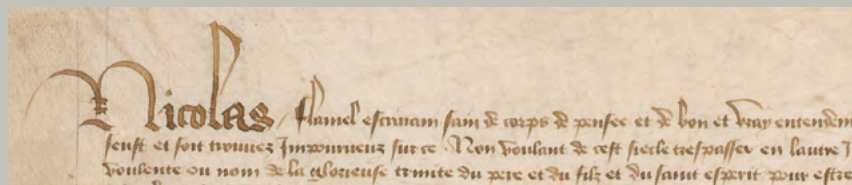 Nicolas Flamel escrivain sain de corps de pensee et de bon et vray entendem
feust et soit trouvez Impourveuz sur ce Non voulant de cest siecle trespasser en lautre I
voulente ou nom de la glorieuse trinite du pere et du filz et du saint esperit pour estre